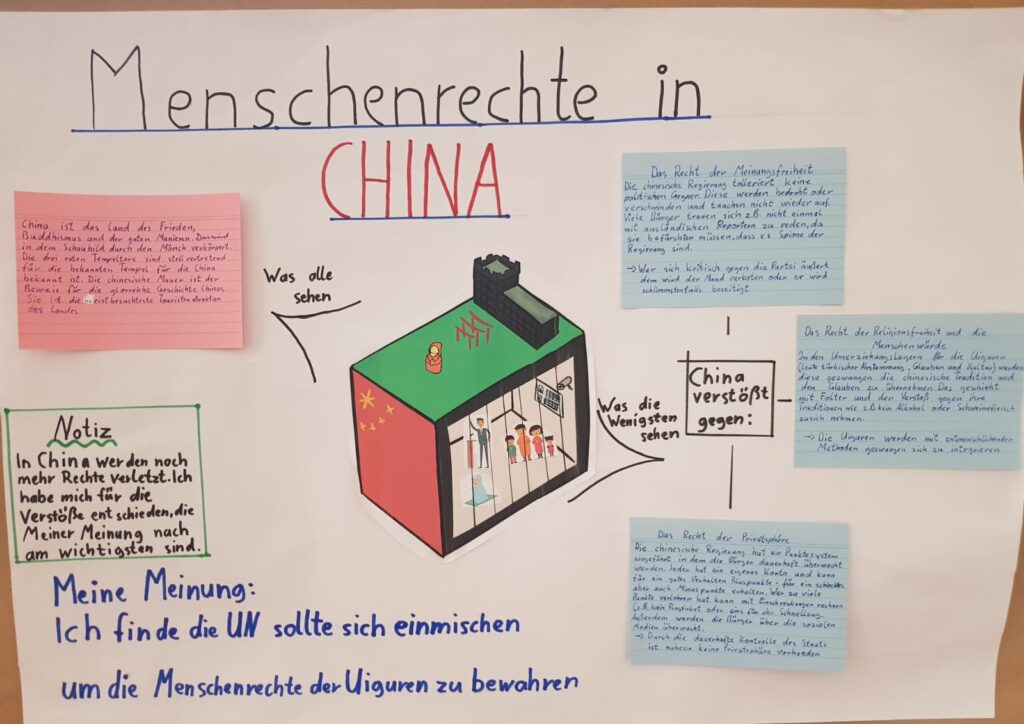 Menschenrechte in
CHINA
China ist das Land des Frieden,
Buddhismus und der guten Manieren. Das wird
in dem Schaubild durch den Mönch verkörpert.
Die drei roten Tempeltore sind stellvertretend
für die bekannten Tempel für die China
bekannt ist. Die chinesische Mauer ist der
Beweis für die glorreiche Geschichte Chinas.
Sie ist die meistbesuchteste Touristenattraktion
des Landes
Was alle
sehen
Was die
Wenigsten
sehen
China
verstößt
gegen:
Das Recht der Meinungsfreiheit
Die chinesische Regierung tolleriert keine
politischen Gegner. Diese werden bedroht oder
verschwinden und tauchen nicht wieder auf.
Viele Bürger trauen sich z.B. nicht einmal
mit ausländischen Reportern zu reden, da
sie befürchten müssen, dass es Spione der
Regierung sind.
→ Wer sich kritisch gegen die Partei äußert
dem wird der Mund verboten oder er wird
schlimmstenfalls beseitigt
Das Recht der Religionsfreiheit und die
Menschenwürde
In den Umerziehungslagern für die Uiguren
(Leute türkischer Abstammung, Glauben und Kultur) werden
diese gezwungen die chinesische Tradition und
den Glauben zu übernehmen. Das geschieht
mit Folter und den Verstoß gegen ihre
Traditionen wie z.B. kein Alkohol oder Schweinefleisch
zusich nehmen.
→ Die Uiguren werden mit entmenschlichenden
Methoden gezwungen sich zu integrieren
Das Recht der Privatsphäre
Die chinesische Regierung hat ein Punktesystem
eingeführt in dem die Bürger dauerhaft überwacht
werden. Jeder hat ein eigenes Konto und kann
für ein gutes Verhalten Pluspunkte - für ein schlechtes
aber auch Minuspunkte erhalten. Wer zu viele
Punkte verloren hat kann mit Einschränkungen rechnen
(z.B. kein Flugticket oder eins für den Schnellzug.
Außerdem werden die Bürger über die sozialen
Medien überwacht.
→ Durch die dauerhafte Kontrolle des Staats
ist nahezu keine Privatsphäre vorhanden
Notiz
In China werden noch
mehr Rechte verletzt. Ich
habe mich für die
Verstöße entschieden, die
Meiner Meinung nach
am wichtigsten sind.
Meine Meinung:
Ich finde die UN sollte sich einmischen
um die Menschenrechte der Uiguren zu bewahren